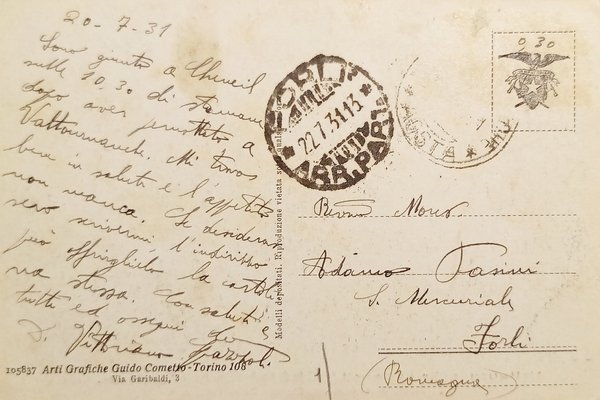 20-7-31
Sono giunto a Chneil
sulle 10.30 di stamane
dopo aver pernottato a
Valtournanche. Mi trovo
bene in salute e l'appetito
non manca. Se desidera-
sero scrivermi, l'indirizzo
può spiegarlo la cartoli
na stessa. Con saluti a
tutti ed ossequi
D. Vittoriano
105837 Arti Grafiche Guido Cometto-Torino 108
Via Garibaldi, 3
Modelli depositati. Riproduzione vietata
FORLÌ
22.7.31.13
ARR. PART.
AOSTA
0,30
Adamo Pasini
S. Mercuriale
Forlì
(Romagna)
1